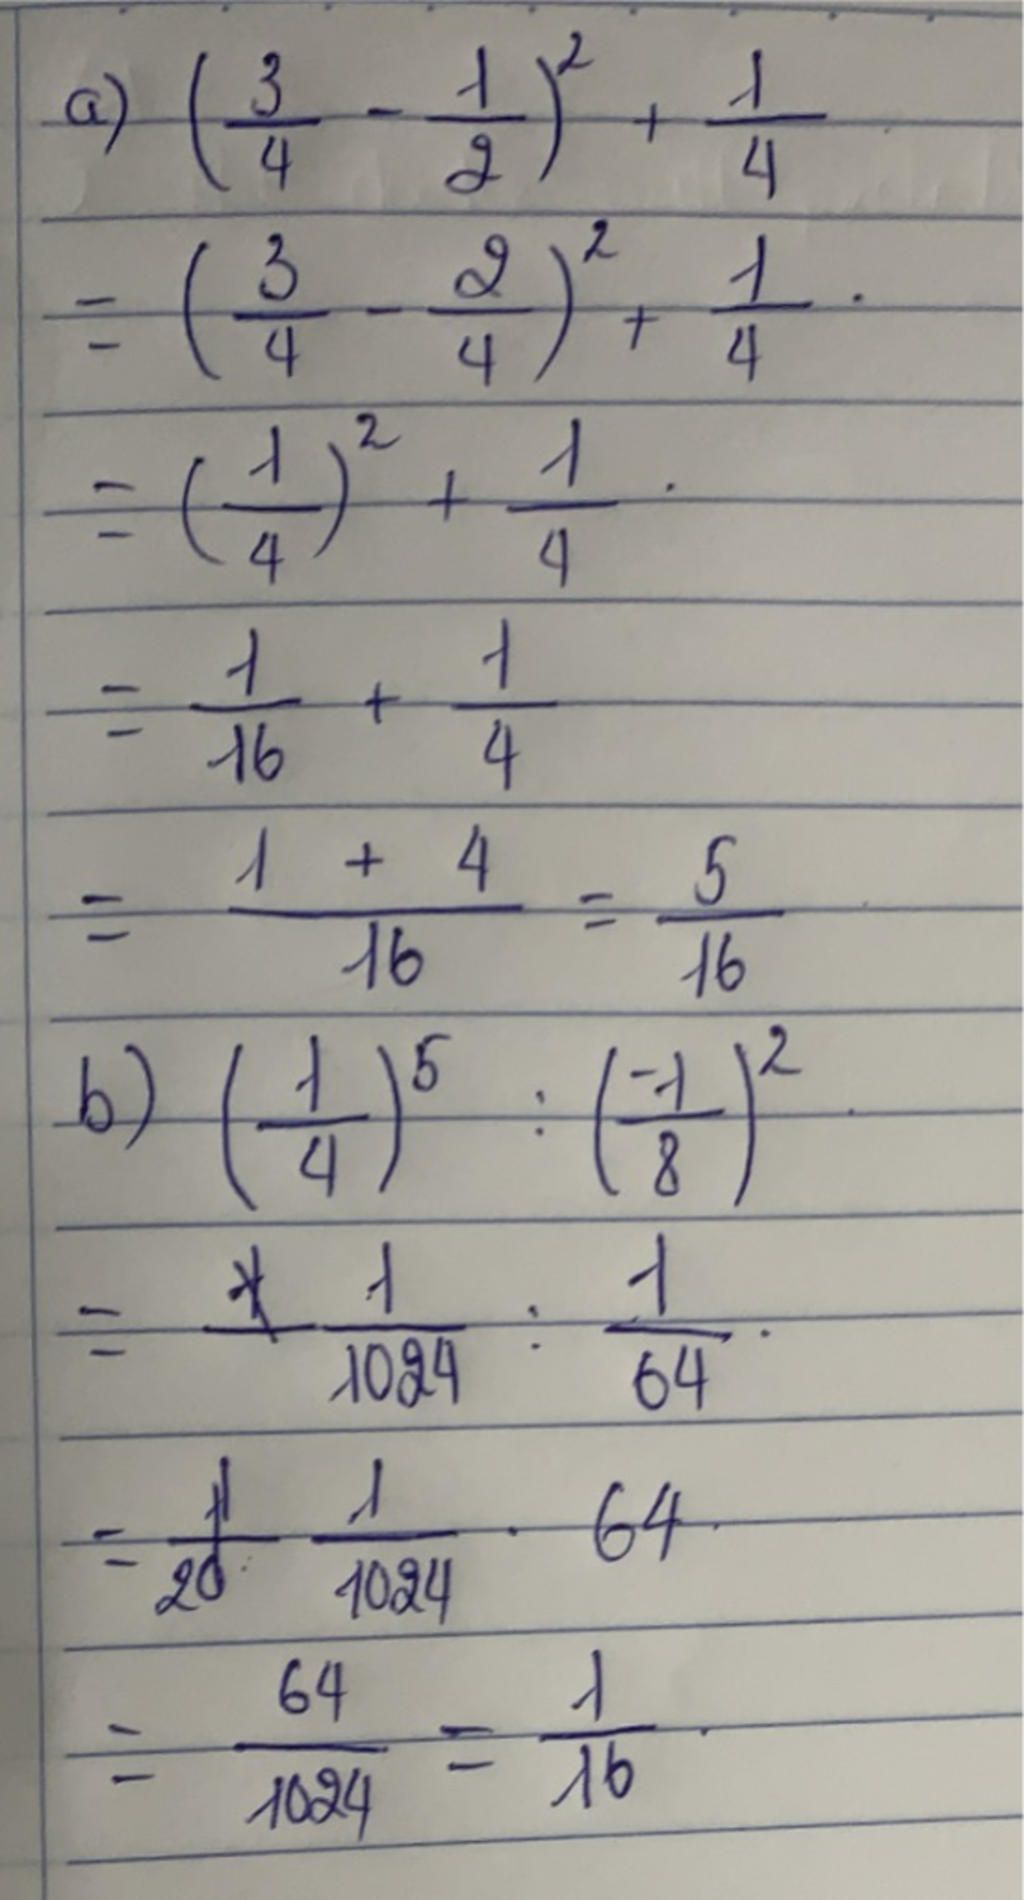 a) (3/4 - 1/2)² + 1/4
= (3/4 - 2/4)² + 1/4.
= (1/4)² + 1/4.
= 1/16 + 1/4
= (1 + 4)/16 = 5/16
b) (1/4)⁵ : (-1/8)²
= 1/1024 : 1/64.
= 1/1024 . 64.
= 64/1024 = 1/16.